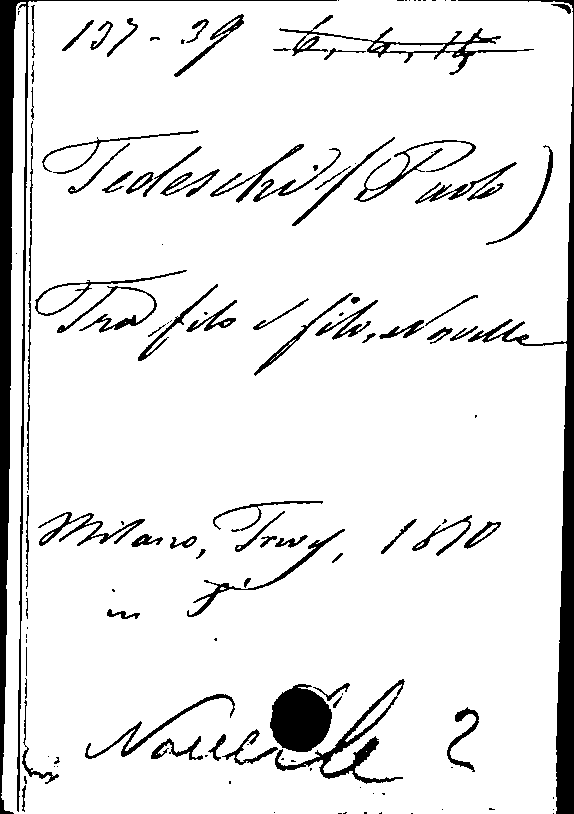 137-39 6, 4, 15
Tedeschi (Paolo)
Tra filo e filo, Novelle
Milano, Trevy, 1870
in 8°
Novelle 2